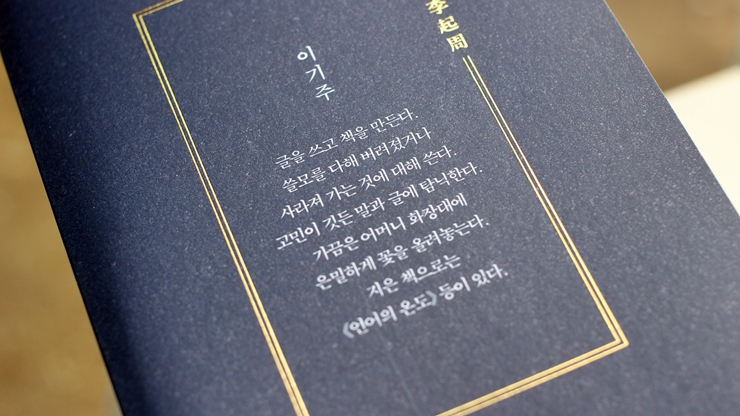 李起周
이기주
글을 쓰고 책을 만든다.
쓸모를 다해 버려졌거나
사라져 가는 것에 대해 쓴다.
고민이 깃든 말과 글에 탐닉한다.
가끔은 어머니 화장대에
은밀하게 꽃을 올려놓는다.
지은 책으로는
《언어의 온도》 등이 있다.